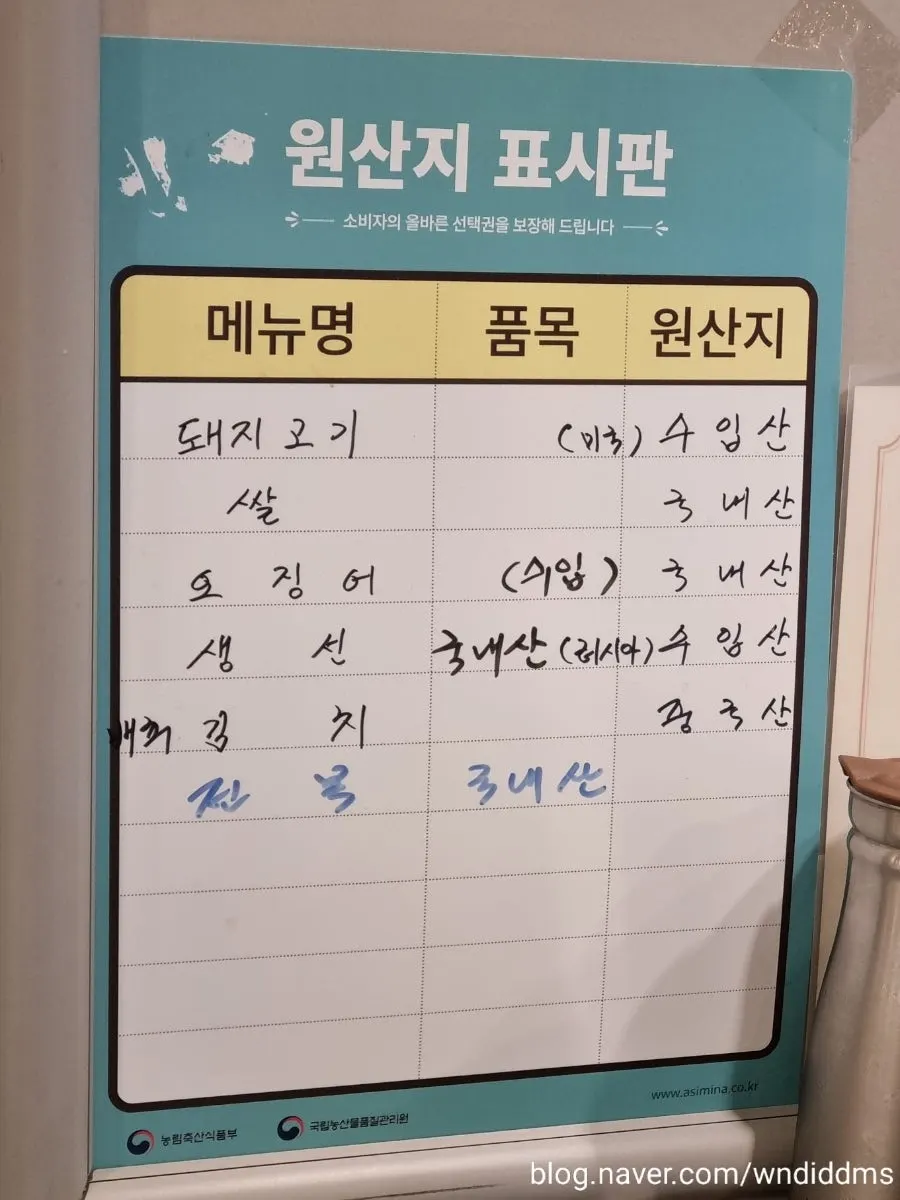 원산지 표시판
소비자의 올바른 선택권을 보장해 드립니다
메뉴명 품목 원산지
돼지고기 (미국) 수입산
쌀 국내산
오징어 (수입) 국내산
생선 국내산 (러시아) 수입산
배추 김치 중국산
전복 국내산
www.asimina.co.kr
농림축산식품부 국립농산물품질관리원
blog.naver.com/wndiddms